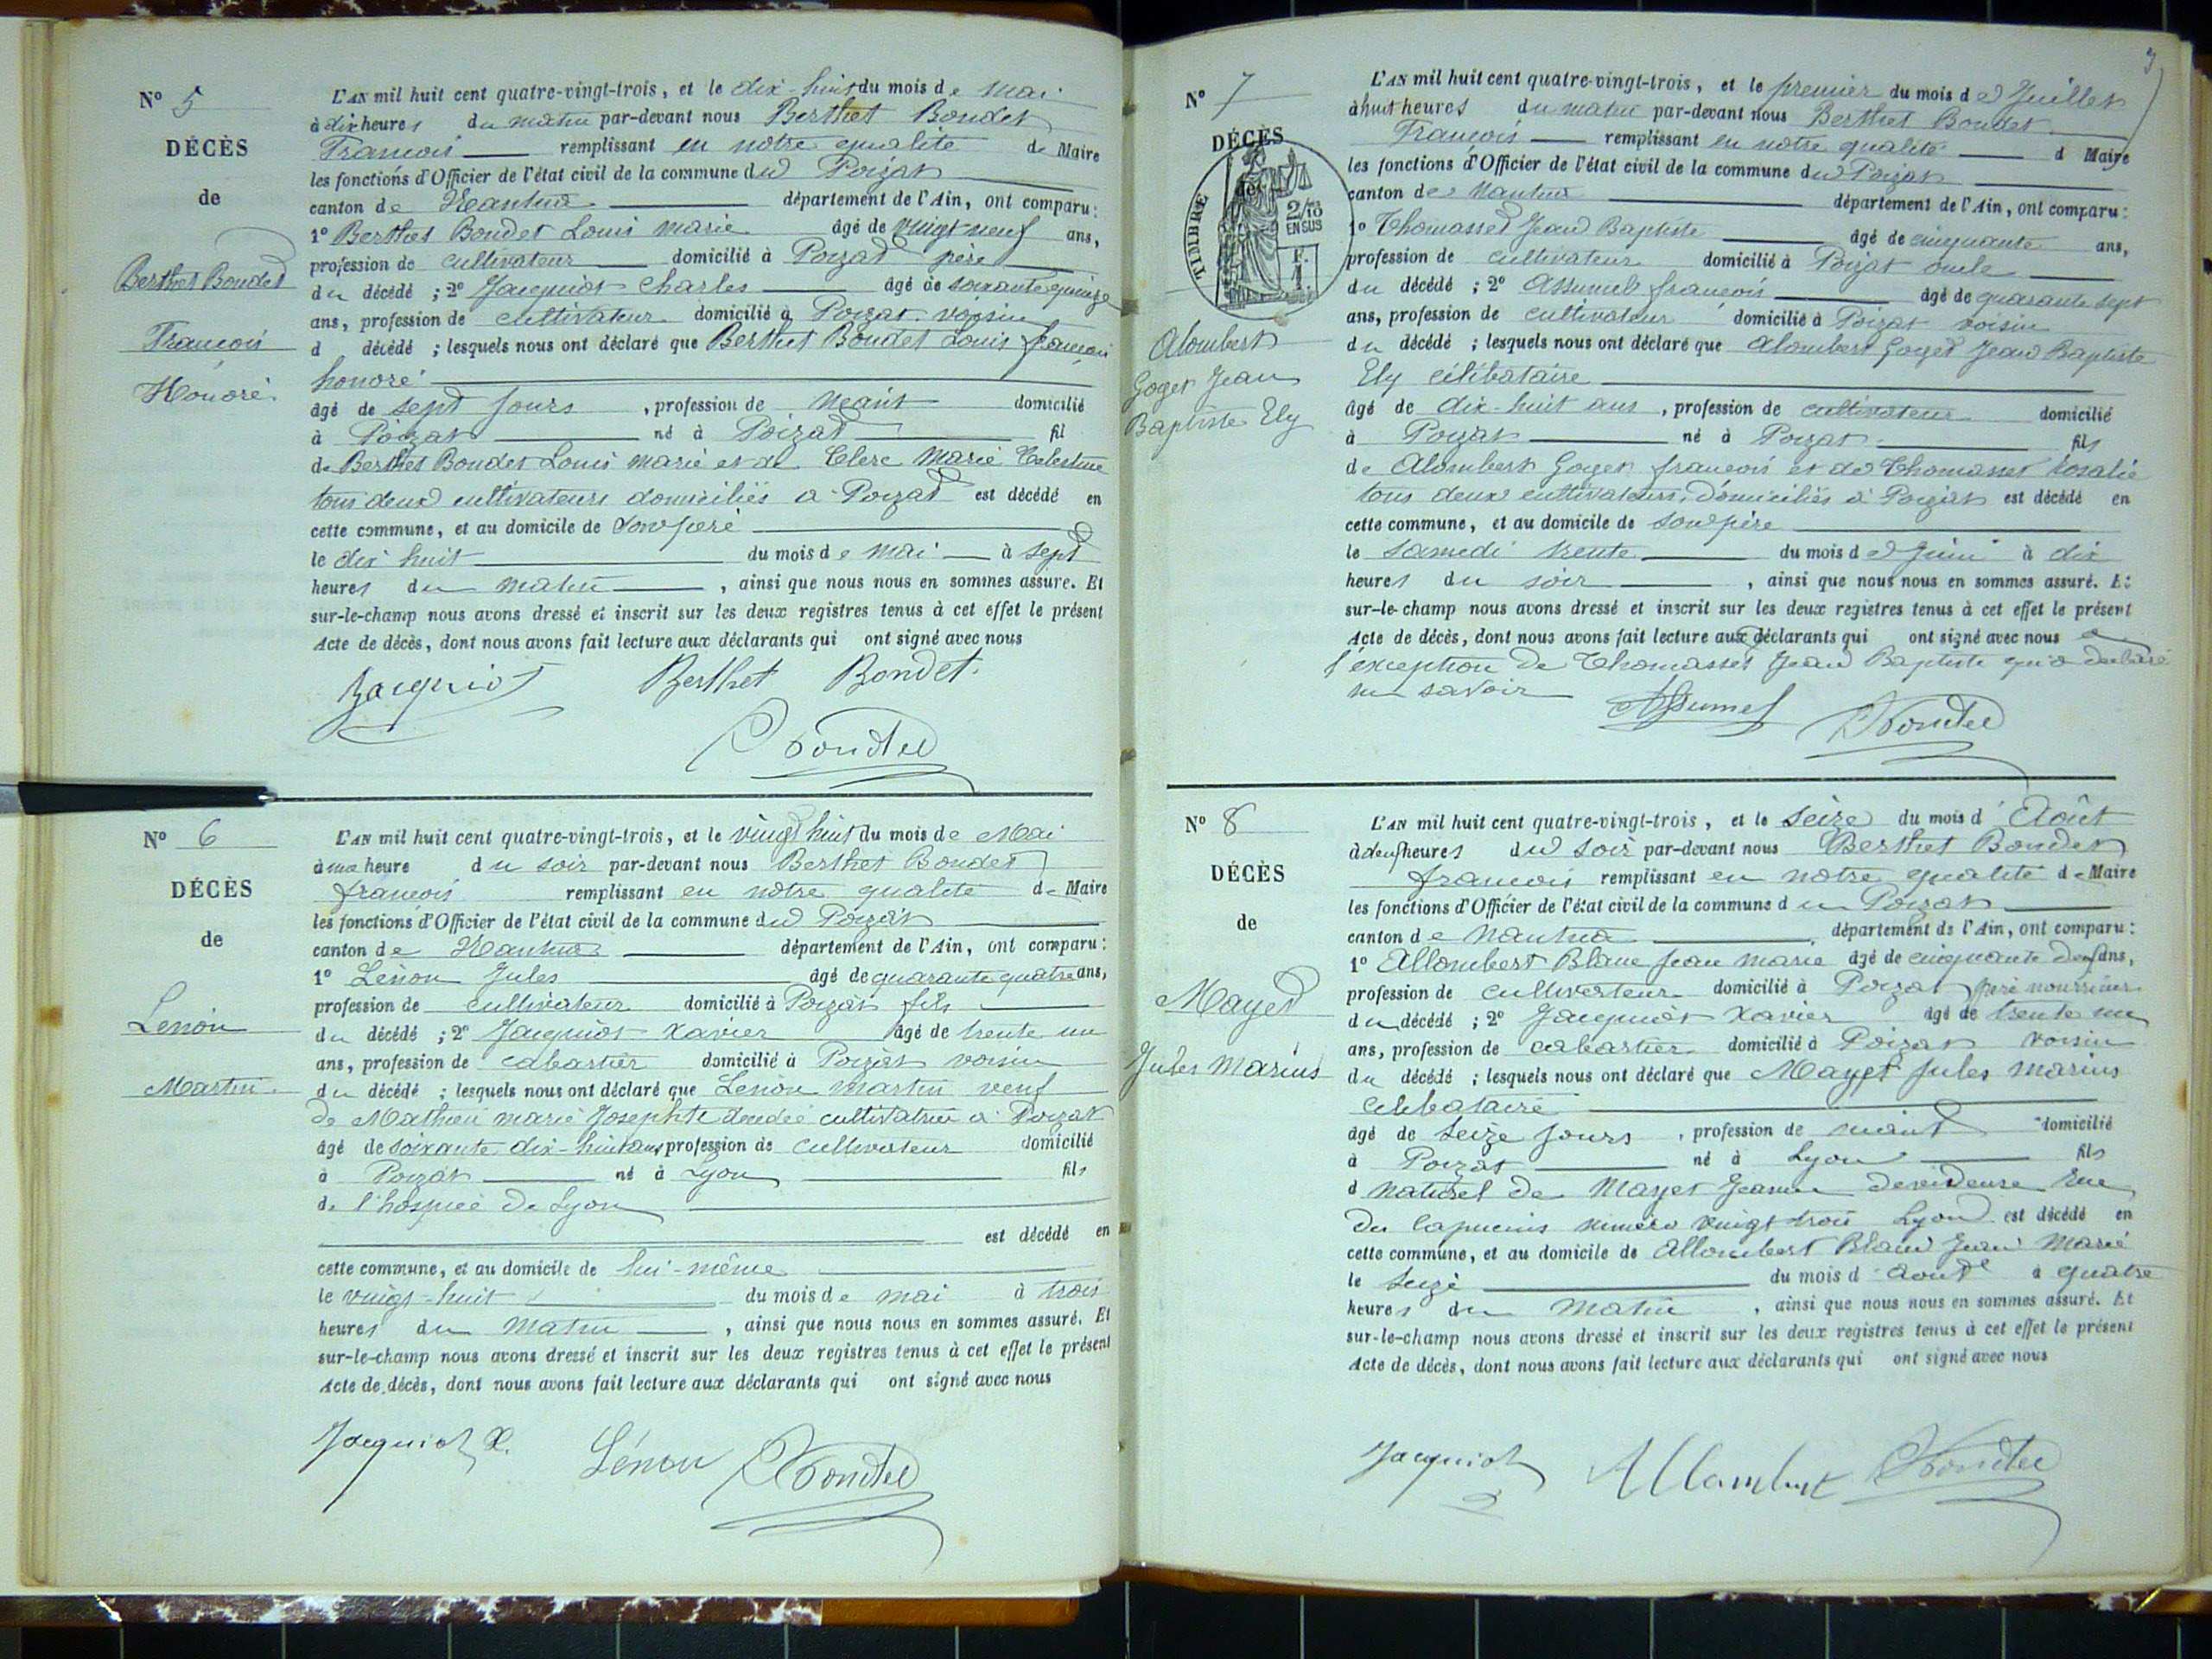 N° 5
DÉCÈS
de
Berthet Bondet
François
Honoré.
L'AN mil huit cent quatre-vingt-trois, et le dix-huit du mois de Mai
à dix heures du matin par-devant nous Berthet Bondet
François remplissant en notre qualité de Maire
les fonctions d'Officier de l'état civil de la commune du Poizat
canton de Nantua département de l'Ain, ont comparu :
1° Berthet Bondet Louis Marie âgé de vingt neuf ans,
profession de cultivateur domicilié à Poizat père
du décédé ; 2° Jacquiot Charles âgé de soixante quinze
ans, profession de cultivateur domicilié à Poizat voisin
d décédé ; lesquels nous ont déclaré que Berthet Bondet Louis françois
honoré
âgé de sept jours , profession de néant domicilié
à Poizat né à Poizat fil
de Berthet Bondet Louis marie et de Clerc Marie Celestine
tous deux cultivateurs domiciliés a Poizat est décédé en
cette commune, et au domicile de son père
le dix huit du mois de mai à sept
heures du matin , ainsi que nous nous en sommes assuré. Et
sur-le-champ nous avons dressé et inscrit sur les deux registres tenus à cet effet le présent
Acte de décès, dont nous avons fait lecture aux déclarants qui ont signé avec nous
Jacquiot Berthet Bondet.
Bondet
N° 6
DÉCÈS
de
Lenon
Martin.
L'AN mil huit cent quatre-vingt-trois, et le vingt huit du mois de Mai
à une heure du soir par-devant nous Berthet Bondet
françois remplissant en notre qualité de Maire
les fonctions d'Officier de l'état civil de la commune du Poizat
canton de Nantua département de l'Ain, ont comparu :
1° Lenon Jules âgé de quarante quatre ans,
profession de cultivateur domicilié à Poizat fils
du décédé ; 2° Jacquiot Xavier âgé de trente un
ans, profession de cabartier domicilié à Poizat voisin
du décédé ; lesquels nous ont déclaré que Lenon Martin veuf
de Mathieu marie Josephte décédée cultivatrice a Poizat
âgé de soixante dix-huit ans profession de cultivateur domicilié
à Poizat né à Lyon fils
de l'hospice de Lyon
est décédé en
cette commune, et au domicile de lui-même
le vingt-huit du mois de mai à trois
heures du matin , ainsi que nous nous en sommes assuré. Et
sur-le-champ nous avons dressé et inscrit sur les deux registres tenus à cet effet le présent
Acte de décès, dont nous avons fait lecture aux déclarants qui ont signé avec nous
Jacquiot X. Lénon Bondet
3
N° 7
DÉCÈS
de
TIMBRE
2/10
EN SUS
F.
1
Alombert
Goget Jean
Baptiste Ely
L'AN mil huit cent quatre-vingt-trois, et le premier du mois de Juillet
à huit heures du matin par-devant nous Berthet Bondet
François remplissant en notre qualité d Maire
les fonctions d'Officier de l'état civil de la commune du Poizat
canton de Nantua département de l'Ain, ont comparu :
1° Thomasset Jean Baptiste âgé de cinquante ans,
profession de cultivateur domicilié à Poizat oncle
du décédé ; 2° Assumel françois âgé de quarante sept
ans, profession de cultivateur domicilié à Poizat voisin
du décédé ; lesquels nous ont déclaré que Alombert Goget Jean Baptiste
Ely célibataire
âgé de dix-huit ans , profession de cultivateur domicilié
à Poizat né à Poizat fils
de Alombert Goget françois et de Thomasset rosalie
tous deux cultivateurs, domiciliés à Poizat est décédé en
cette commune, et au domicile de son père
le samedi trente du mois de Juin à dix
heures du soir , ainsi que nous nous en sommes assuré. Et
sur-le-champ nous avons dressé et inscrit sur les deux registres tenus à cet effet le présent
Acte de décès, dont nous avons fait lecture aux déclarants qui ont signé avec nous a
l'exception de Thomasset Jean Baptiste qui a déclaré
ne savoir
Assumel Bondet
N° 8
DÉCÈS
de
Mayet
Jules Marius
L'AN mil huit cent quatre-vingt-trois, et le seize du mois d'Août
à deux heures du soir par-devant nous Berthet Bondet
françois remplissant en notre qualité de Maire
les fonctions d'Officier de l'état civil de la commune du Poizat
canton de Nantua département de l'Ain, ont comparu :
1° Allombert Blanc Jean marie âgé de cinquante deux ans,
profession de cultivateur domicilié à Poizat père nourricier
du décédé ; 2° Jacquiot Xavier âgé de trente un
ans, profession de cabartier domicilié à Poizat voisin
du décédé ; lesquels nous ont déclaré que Mayet Jules Marius
célibataire
âgé de seize jours , profession de néant domicilié
à Poizat né à Lyon fils
d naturel de Mayet Jeanne devideuse rue
des capucins numéro vingt trois Lyon est décédé en
cette commune, et au domicile de Allombert Blanc Jean Marie
le seize du mois d'aout à quatre
heures du matin , ainsi que nous nous en sommes assuré. Et
sur-le-champ nous avons dressé et inscrit sur les deux registres tenus à cet effet le présent
Acte de décès, dont nous avons fait lecture aux déclarants qui ont signé avec nous
Jacquiot Allombert Bondet